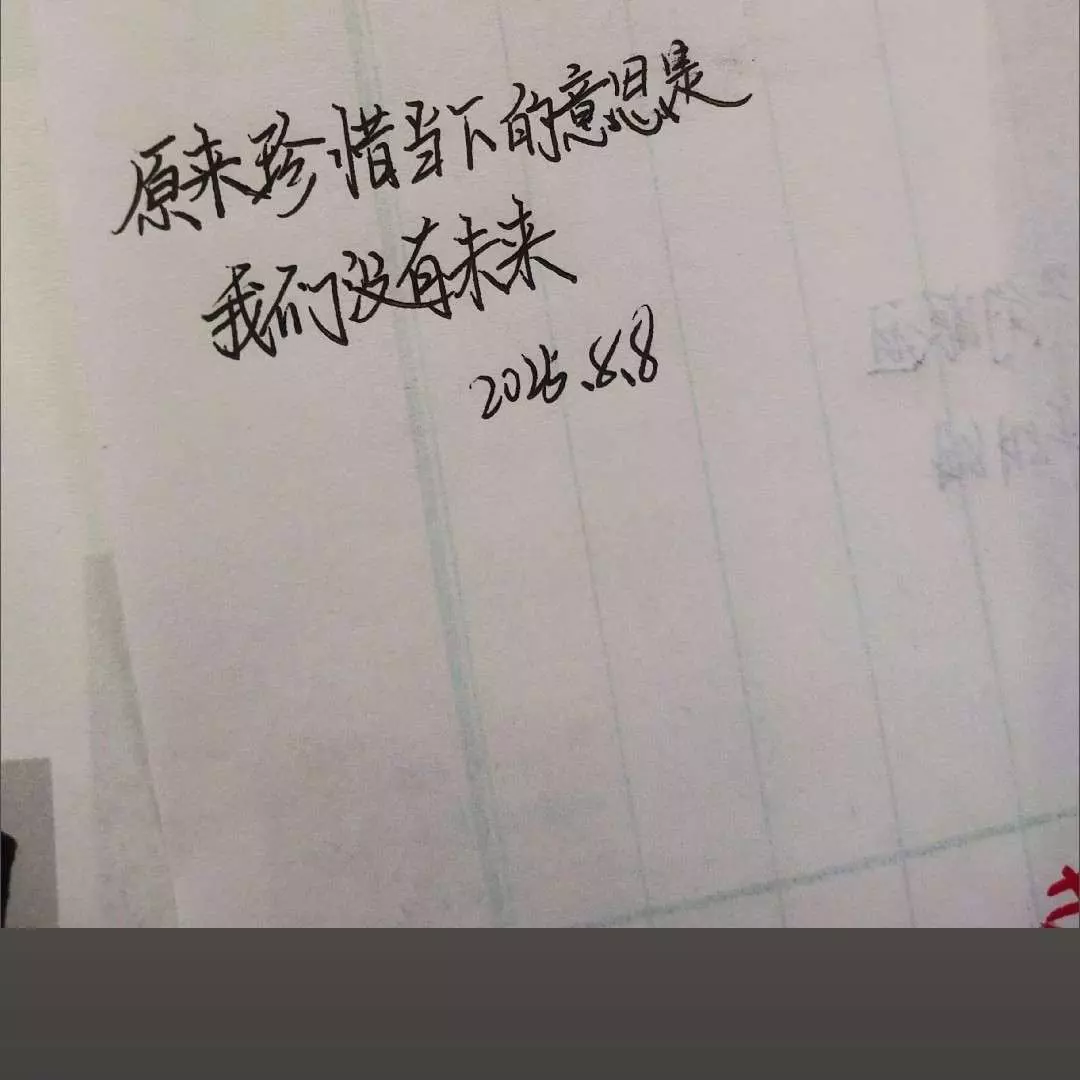 原来珍惜当下的意思是
我们没有未来
2025.8.8